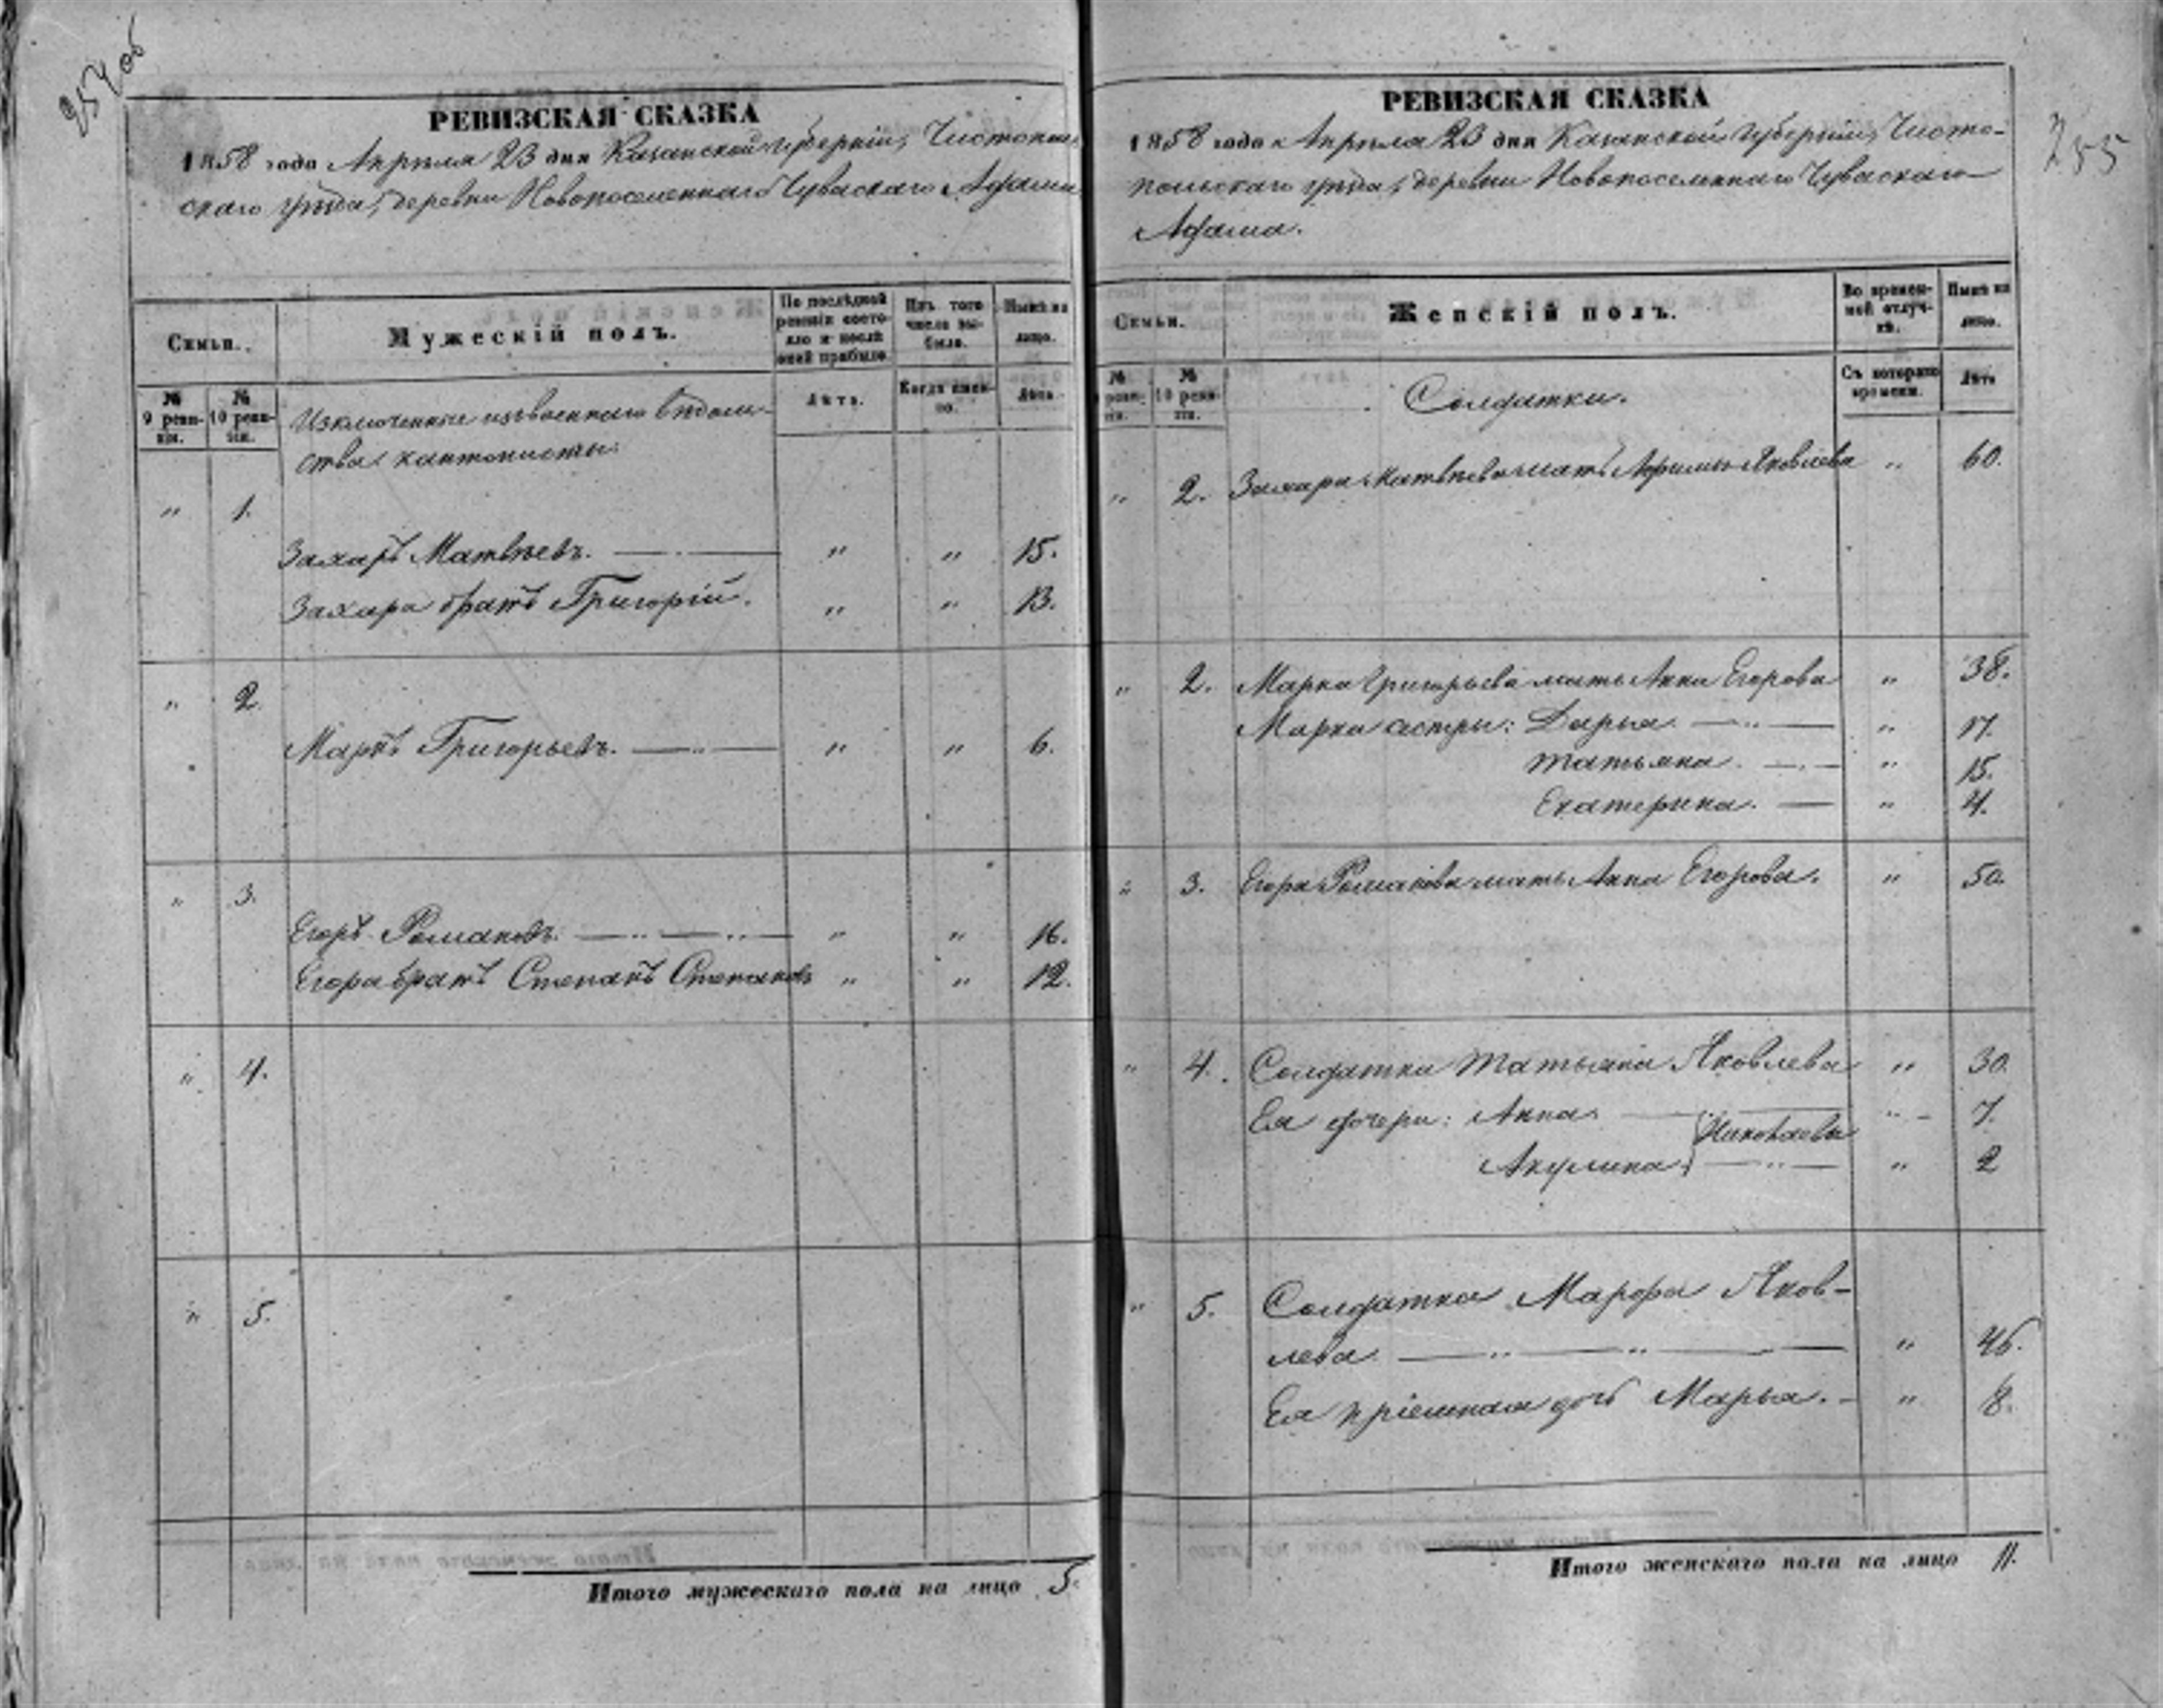 254 об
РЕВИЗСКАЯ СКАЗКА
1858 года Апреля 23 дня Казанской губерніи, Чистополь
скаго уѣзда, деревни Новопоселеннаго Чуваскаго Адама
Семьи.
Мужескій полъ.
По послѣдней ревизіи состояло и послѣ оной прибыло.
Изъ того числа выбыло.
Нынѣ на лицо.
№ 9 ревизіи.
№ 10 ревизіи.
Лѣта.
Когда именно.
Лѣта.
Изключенные изъ военнаго вѣдом-
ства кантонисты:
" 1.
Захаръ Матвѣевъ. " " 15.
Захара братъ Григорій. " " 13.
" 2.
Маркъ Григорьевъ. " " 6.
" 3.
Егоръ Романовъ. " " 16.
Егора братъ Степанъ Степановъ " " 12.
" 4.
" 5.
Итого мужескаго пола на лицо 5.
255
РЕВИЗСКАЯ СКАЗКА
1858 года Апреля 23 дня Казанской губерніи, Чисто-
польскаго уѣзда, деревни Новопоселеннаго Чуваскаго
Адама.
Семьи.
Женскій полъ.
Во временной отлучкѣ.
Нынѣ на лицо.
№ 9 ревизіи.
№ 10 ревизіи.
Съ котораго времени.
Лѣта
Солдатки.
" 2. Захара Матвѣева мать Яковлева " 60.
" 2. Марка Григорьева мать Анна Егорова " 38.
Марка сестры: Дарья. " 17.
Татьяна. " 15.
Екатерина. " 4.
" 3. Егора Романова мать Анна Егорова. " 50.
" 4. Солдатка Татьяна Яковлева " 30.
Ея дочери: Анна. " 7.
Николаевы
Акулина. " 2
" 5. Солдатка Марфа Яков-
лева. " 46.
Ея пріемная дочь Марья. " 8.
Итого женскаго пола на лицо 11.